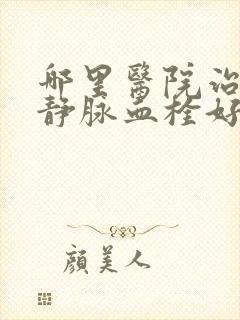 哪里醫院治
静脉血栓好
顏美人